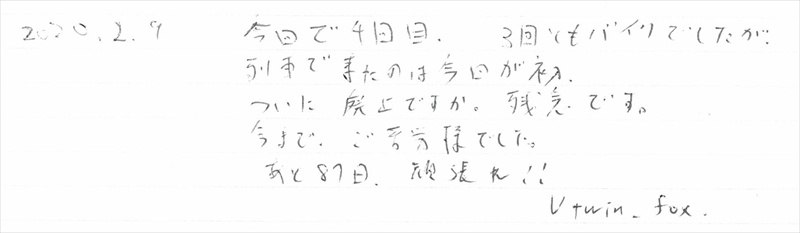 2020.2.9 今回で4回目. 3回ともバイクでしたが.
列車で来たのは今回が初.
ついに廃止ですか。残念です。
今まで、ご苦労様でした。
あと87日、頑張れ!!
Vtwin_fox.